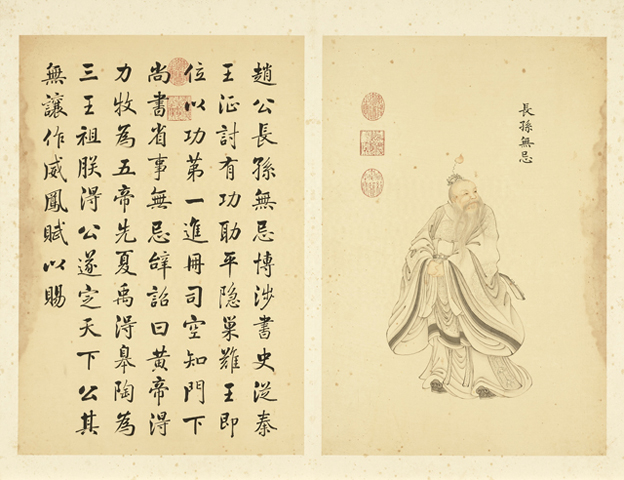 長孫無忌
趙公長孫無忌博涉書史從秦
王征討有功助平隐巢難王即
位以功第一進冊司空知門下
尚書省事無忌辝詔曰黃帝得
力牧為五帝先夏禹得皋陶為
三王祖朕得公遂定天下公其
無讓作威鳳賦以賜